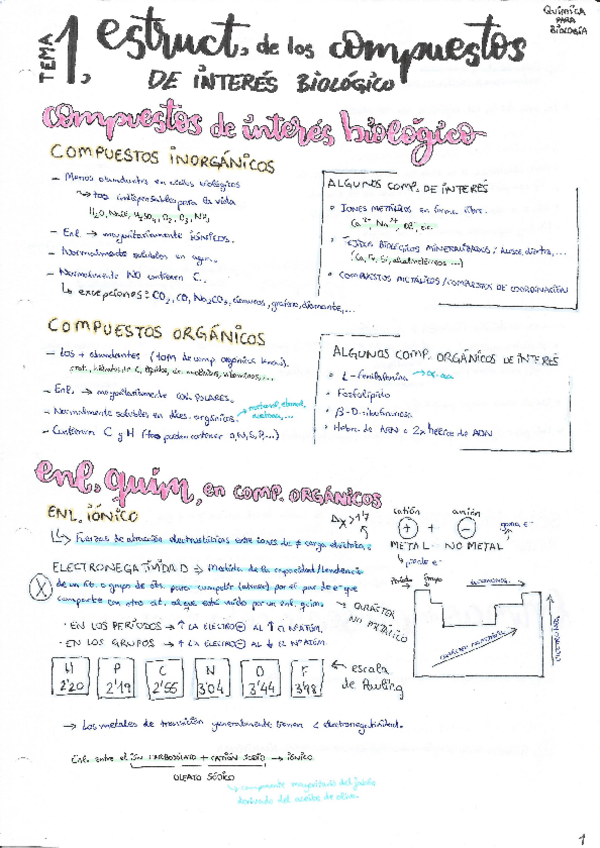 QUÍMICA
PARA
BIOLOGÍA
TEMA 1, estruct. de los compuestos
DE INTERÉS BIOLÓGICO
compuestos de interés biológico
COMPUESTOS INORGÁNICOS
- Menos abundantes en
↳ indispensables para la vida
- Enl. → mayoritariamente IÓNICOS.
- Normalmente solubles en agua.
- Normalmente NO contienen C.
↳ excepciones: CO2, CO, Na2CO3, cianuros, grafito, diamante,...
ALGUNOS COMP. DE INTERÉS
• IONES METÁLICOS en forma libre.
• TEJIDOS BIOLÓGICOS MINERALIZADOS: huesos, dientes,...
• COMPUESTOS METÁLICOS / COMPUESTOS DE COORDINACIÓN
COMPUESTOS ORGÁNICOS
- Los + abundantes
- Enl. → mayoritariamente COV. POLARES.
- Normalmente solubles en dives. orgánicos.
- Contienen C y H (tb pueden contener O, N, S, P,...)
ALGUNOS COMP. ORGÁNICOS DE INTERÉS
• L-fenilalanina
• Fosfolípido
• β-D-ribofuranosa
• Hebra de ARN o 2x hélice de ADN
enl. quím. en COMP. ORGÁNICOS
ENL. IÓNICO
Δχ>1'7
↳ Fuerzas de atracción electrostáticas entre iones de ≠ carga eléctrica
catión + anión
gana e-
METAL NO METAL
↳ pierde e-
ELECTRONEGATIVIDAD → Medida de la capacidad/tendencia
de un át. o grupo de áts. para competir (atraer) por el par de e- que
comparte con otro át. al que está unido por un enl. quím.
→ CARÁCTER
NO METÁLICO
· EN LOS PERÍODOS → ↑ LA ELECTRO⊖ AL ↑ EL Nº ATÓM.
· EN LOS GRUPOS → ↑ LA ELECTRO⊖ AL ↓ EL Nº ATÓM.
H 2'20
P 2'19
C 2'55
N 3'04
O 3'44
F 3'98
← escala
de Pauling
→ Los metales de transición generalmente tienen < electronegatividad.
Enl. entre el IÓN CARBOXILATO + CATIÓN SODIO → IÓNICO
OLEATO SÓDICO
↳ componente mayoritario del jabón
derivado del aceite de oliva.
1